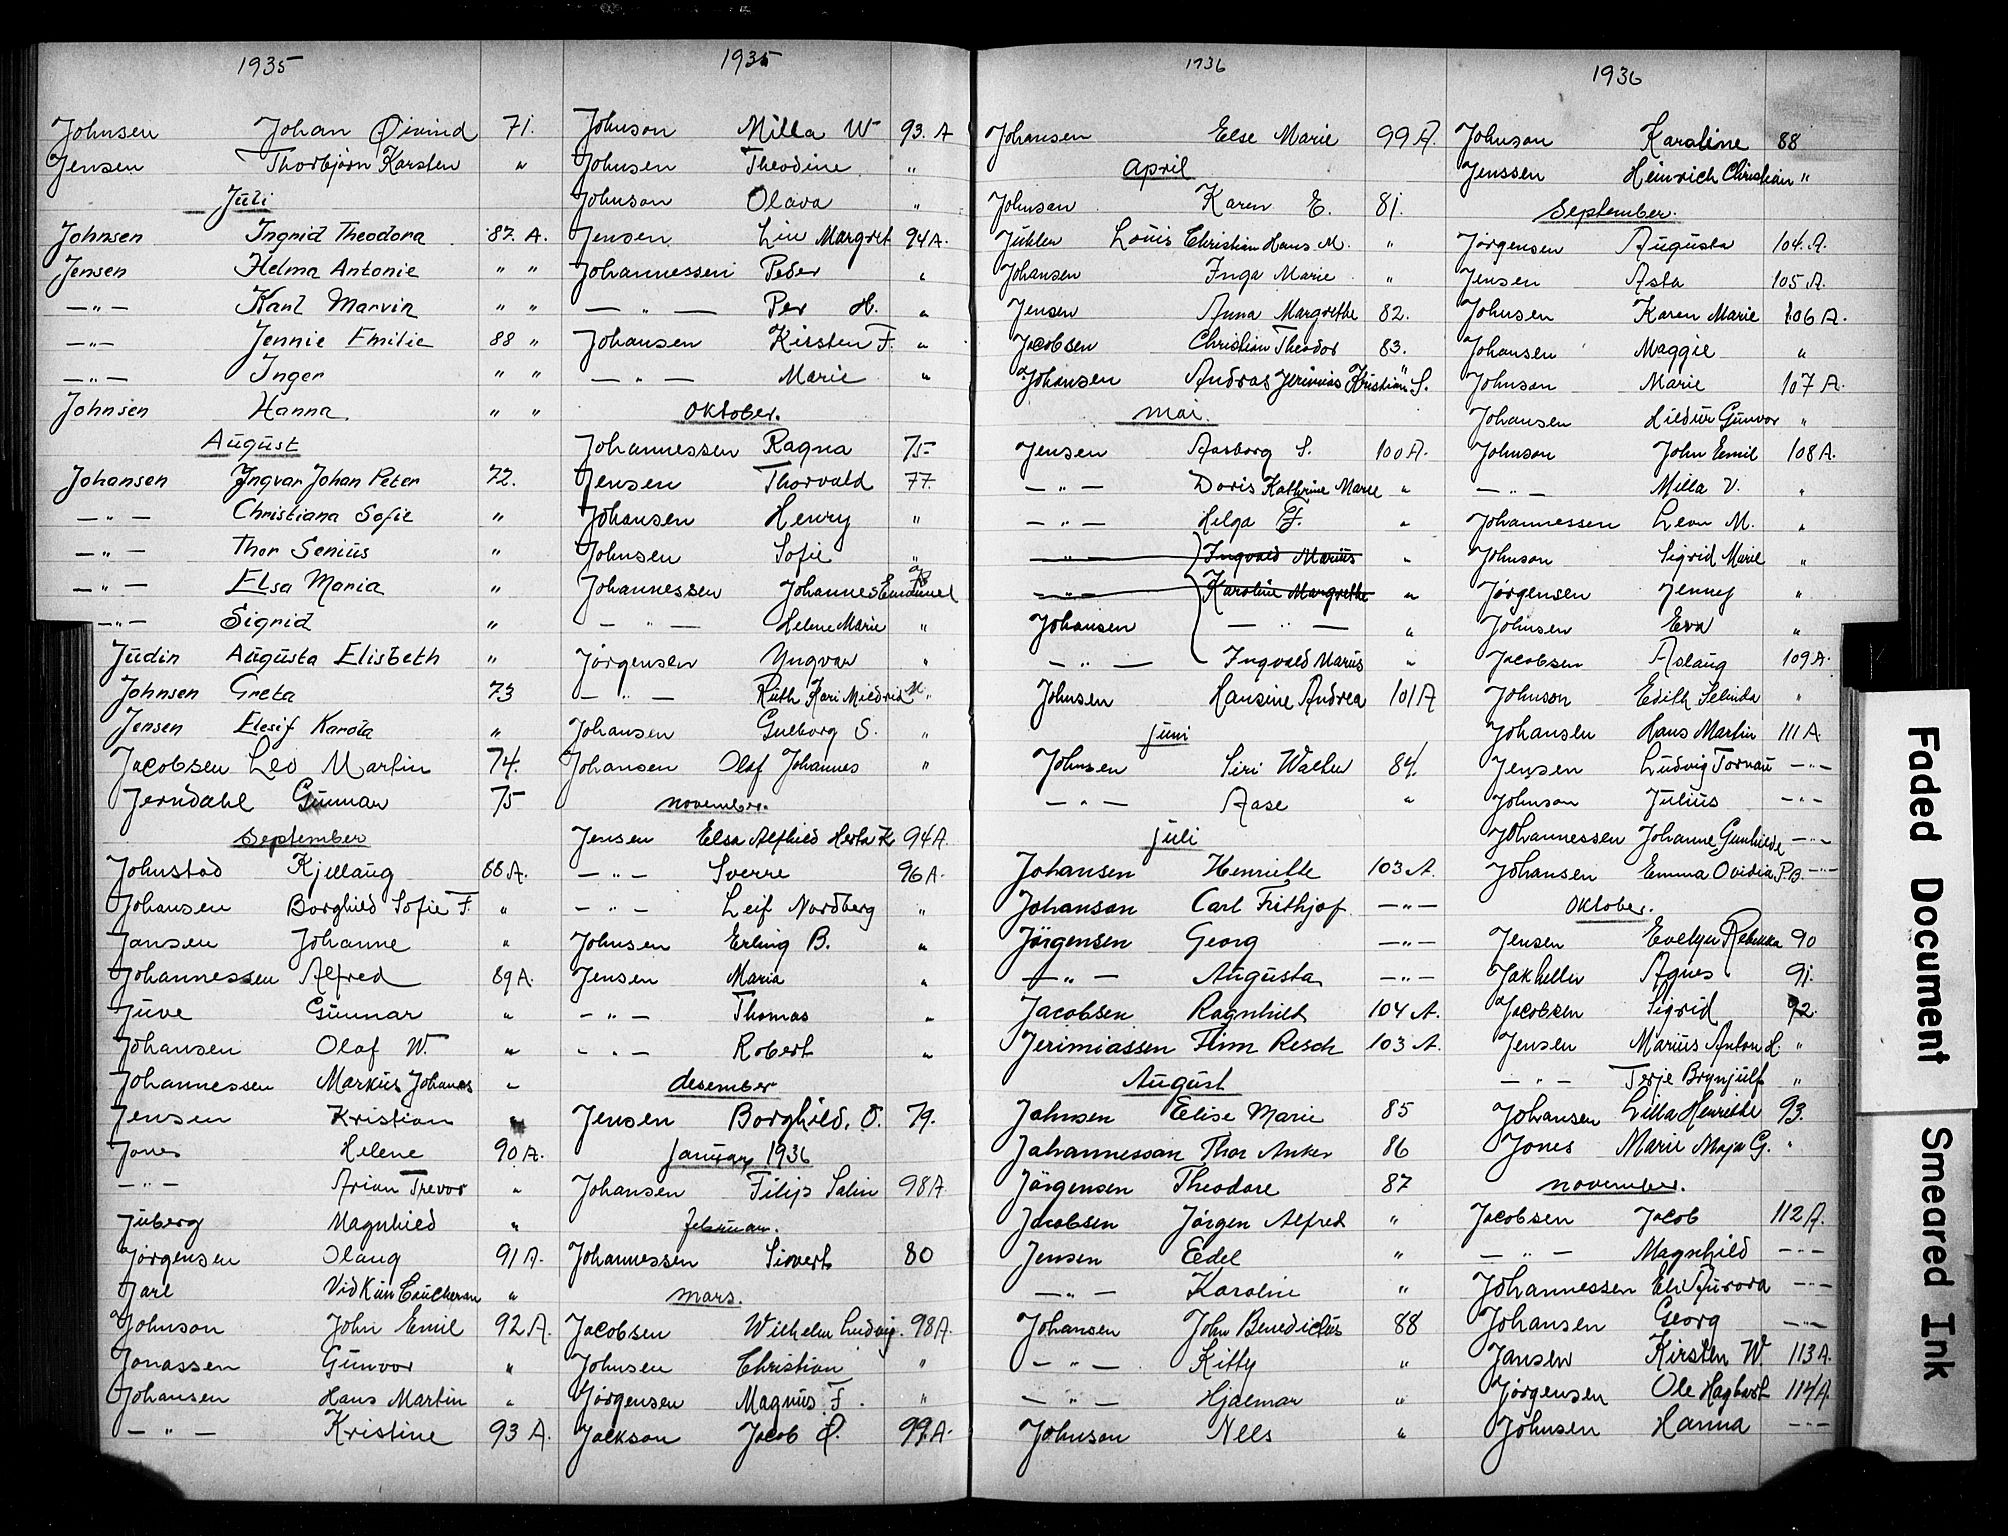 1935
Johnsen Johan Øivind 71.
Jensen Thorbjørn Karsten "
Juli
Johnsen Ingrid Theodora 87. A.
Jensen Helma Antonie " "
— " — Karl Marvin " "
— " — Jennie Emilie 88 "
— " — Inger " "
Johnsen Hanna " "
August
Johansen Yngvar Johan Peter 72.
— " — Christiana Sofie "
— " — Thor Senius "
— " — Elsa Maria "
— " — Sigrid "
Judin Augusta Elisbeth "
Johnsen Greta 73
Jensen Elesif Karola "
Jacobsen Leo Martin 74.
Jerndahl Gunnar 75
September
Johnstad Kjellaug 88 A.
Johansen Borghild Sofie F. "
Jansen Johanne "
Johannessen Alfred 89 A.
Juve Gunnar "
Johansen Olaf W. "
Johannessen Markus Johanes "
Jensen Kristian "
Jones Helene 90 A.
— " — Arian Trevor "
Juberg Magnhild "
Jørgensen Olaug 91 A.
Jarl Vidkun "
Johnson John Emil 92 A.
Jonassen Gunvor "
Johansen Hans Martin "
— " — Kristine 93 A.
1935
Johnson Milla W 93. A
Johnsen Theodine "
Johnson Olava "
Jensen Liv Margret 94 A.
Johannessen Peder "
— " — Per H. "
Johansen Kirsten F. "
— " — Marie "
Oktober.
Johannessen Ragna 75-
Jensen Thorvald 77.
Johansen Henry "
Johnsen Sofie "
Johannessen Johannes Emanuel
— " — Helene Marie "
Jørgensen Yngvar "
— " — Ruth Kari Mildrid M. "
Johansen Gulborg S. "
Johansen Olaf Johannes "
november.
Jensen Elsa Alfhild Herta K 94 A.
— " — Sverre 96 A.
— " — Leif Nordberg "
Johnsen Erling B. "
Jensen Maria "
— " — Thomas "
— " — Robert "
desember
Jensen Borghild. O. 79.
Januar 1936
Johansen Filip Salin 98 A
februar.
Johannessen Sivert 80
mars.
Jacobsen Wilhelm Ludvig. 98 A.
Johnsen Christian "
Jørgensen Magnus F. "
Jackson Jacob O. 99. A.
1936
Johansen Else Marie 99 A.
April
Johnson Karen E. 81.
Juhler Louis Christian Hans M. "
Johansen Inga Marie "
Jensen Anna Margrethe 82.
Jacobsen Christian Theodor 83.
Johansen Andras Jerimias Kristian S. "
mai.
Jensen Aasborg S. 100 A.
— " — Doris Kathrine Marie "
— " — Helga F. "
— " — Ingvald Marius "
— " — Karoline Margrethe "
Johansen — " — "
— " — Ingvald Marius "
Johnsen Hansine Andrea 101 A
juni
Johnsen Siri Walher 84.
— " — Aase "
juli
Johansen Henriette 103 A.
Johanson Carl Frithjof — " —
Jørgensen Georg — " —
— " — Augusta — " —
Jacobsen Ragnhild 104 A.
Jerimiassen Finn Resch 103 A.
August
Johnsen Elise Marie 85
Johannesson Thor Anker 86
Jørgensen Theodore 87
Jacobsen Jørgen Alfred "
Jensen Edel "
— " — Karoline "
Johansen John Benedictus 88
— " — Kitty "
— " — Hjalmar "
Johnson Nels "
1936
Johnson Karoline 88
Jenssen Heinrich Christian "
September.
Jørgensen Augusta 104. A.
Jensen Asta 105 A.
Johnsen Karen Marie 106 A.
Johansen Maggie "
Johnson Marie 107 A.
Johansen Hildur Gunvor "
Johnson John Emil 108 A.
— " — Milla V. "
Johannessen Leon M. "
Johnson Sigrid Marie "
Jørgensen Jenny "
Johnsen Eva "
Jacobsen Aslaug 109 A.
Johnson Edith Selinda "
Johansen Hans Martin 111 A
Jensen Ludvig Tornau — " —
Johnson Julius — " —
Johannessen Johanne Gunhilde — " —
Johansen Emma Ovidia P.B. — " —
Oktober.
Jensen Evelyn Rebekka 90
Jakheller Agnes 91.
Jacobsen Sigrid 92.
Jensen Marius Anton H. "
— " — Terje Brynjulf "
Johansen Lilla Henriette 93.
Jones Marie Maja G. "
november.
Jacobsen Jacob 112 A.
— " — Magnhild — " —
Johannessen Eli Aurora — " —
Johansen Georg — " —
Jansen Kirsten W. 113 A.
Jørgensen Ole Hagbart 114 A.
Johnsen Hanna — " —
Faded Document Smeared Ink